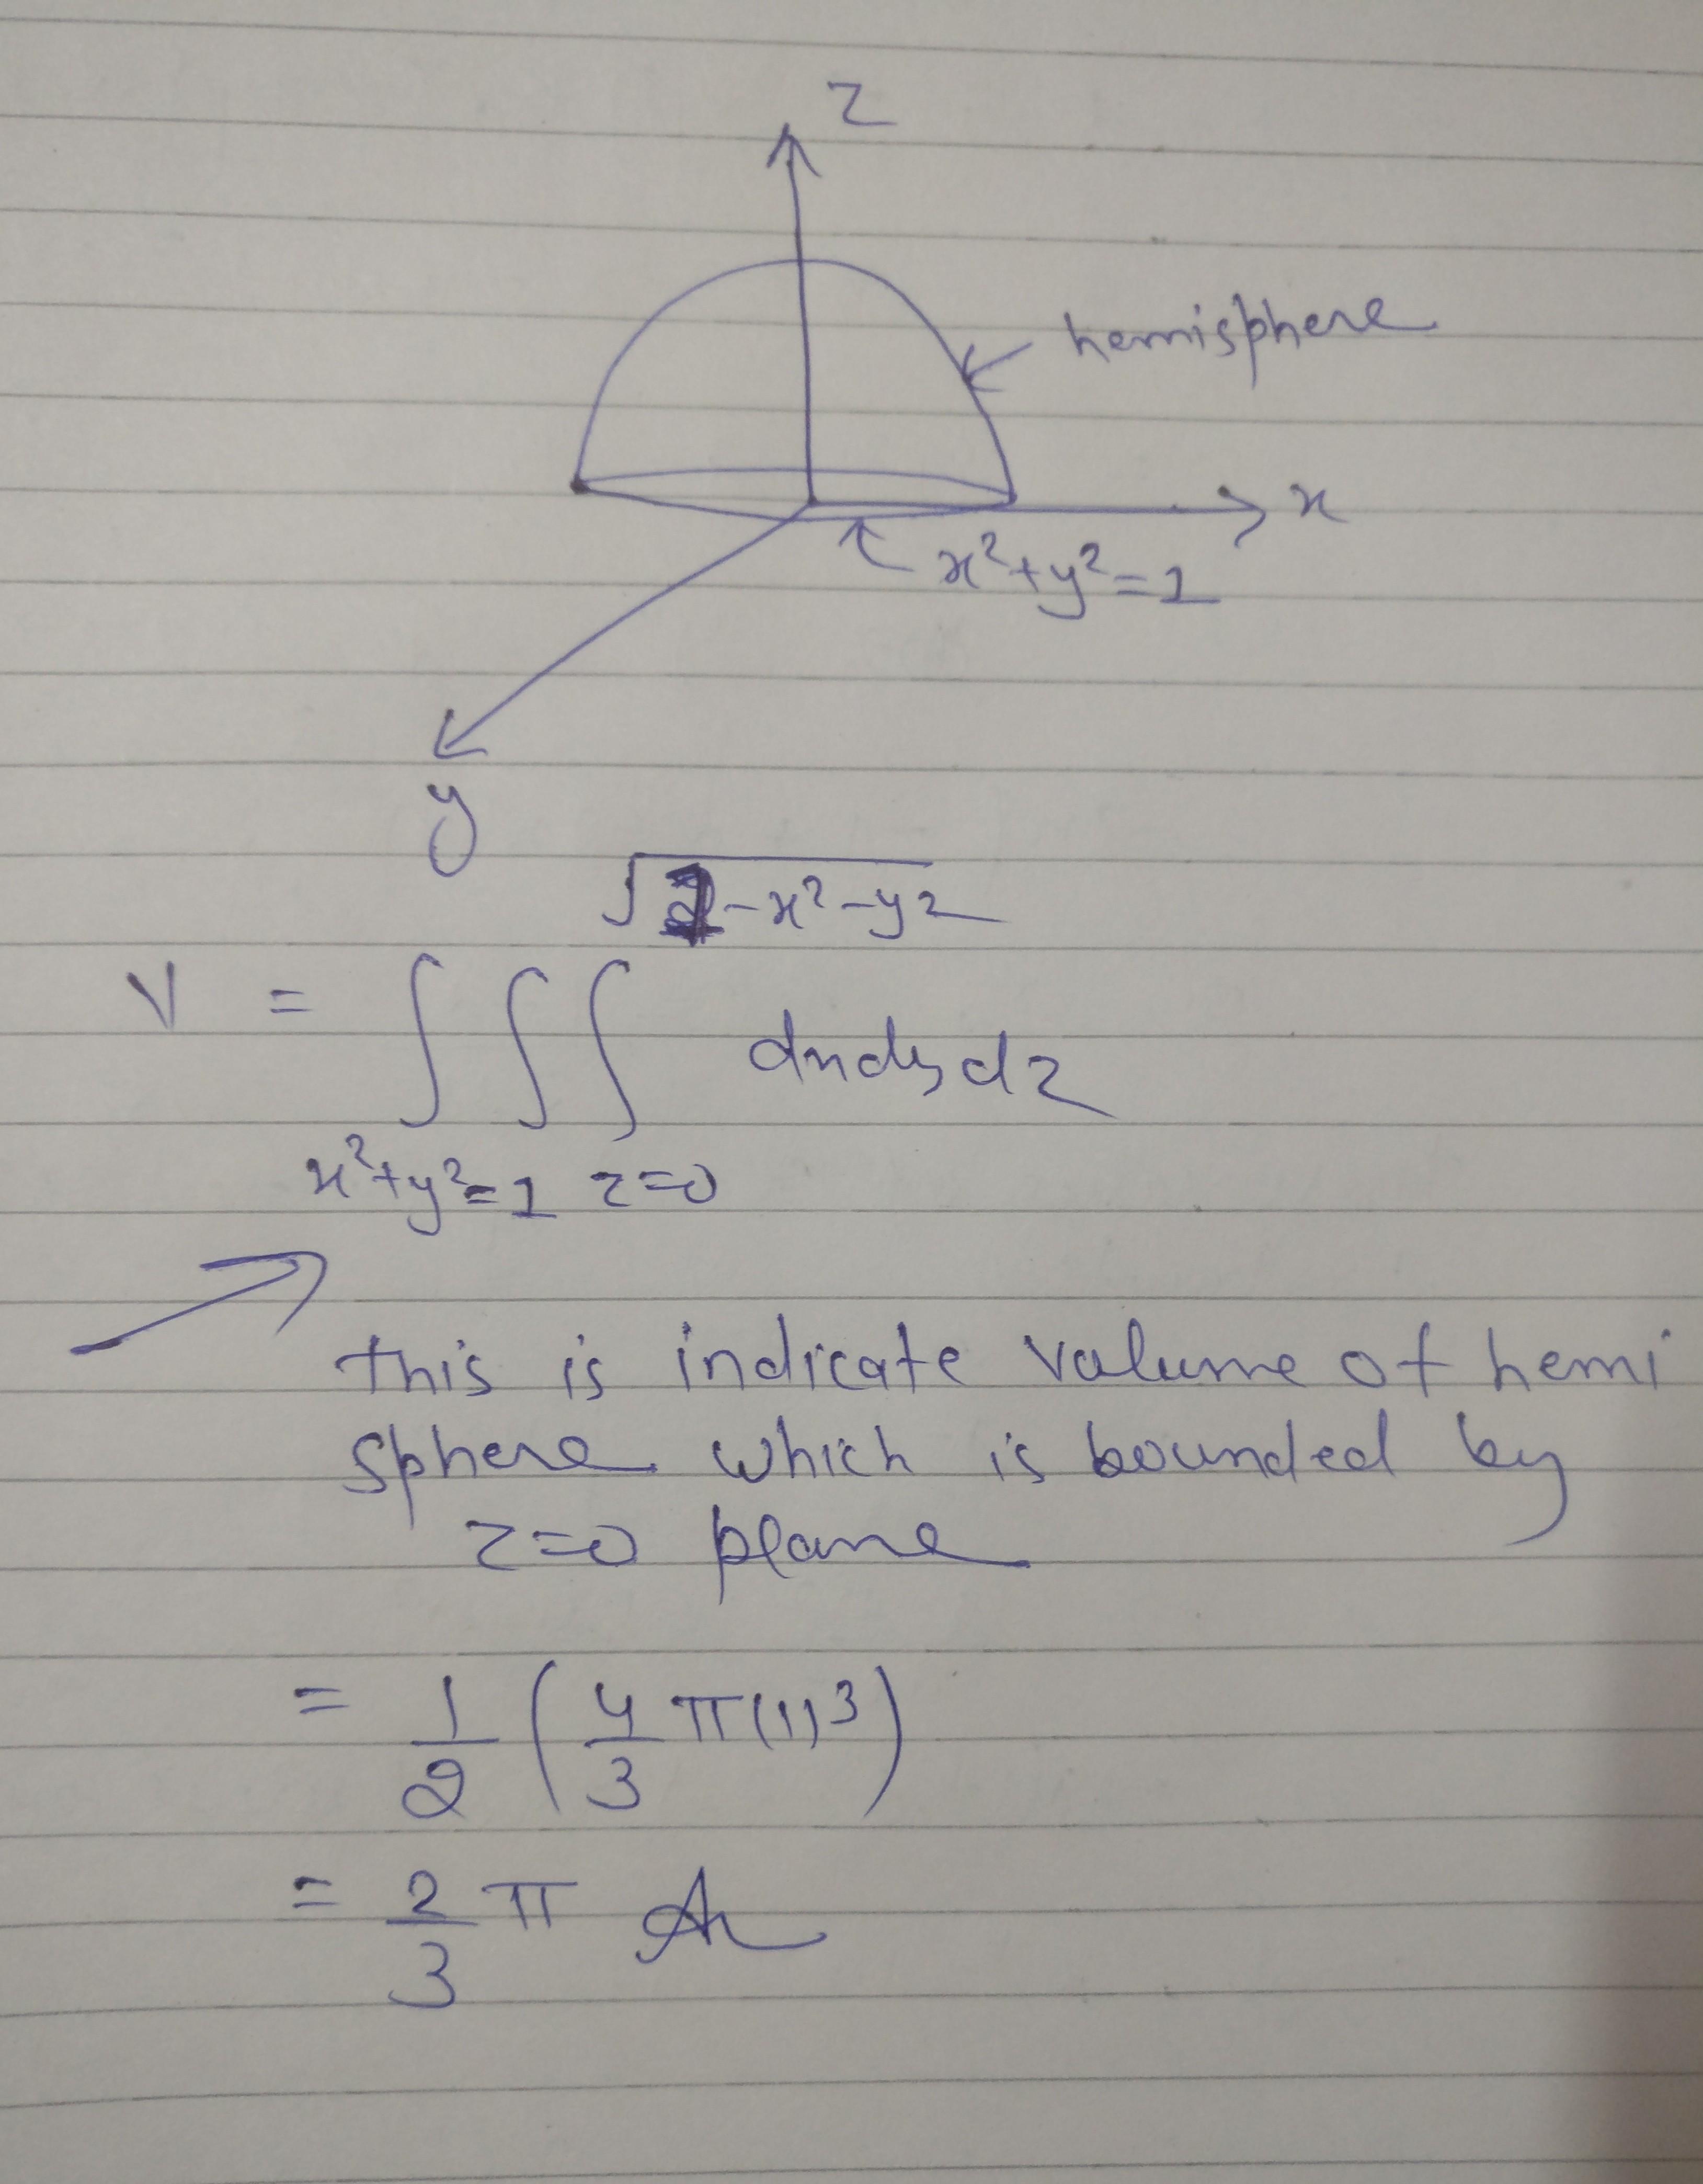 z
hemisphere
x
x²+y²=1
y
√1-x²-y²
V = ∫∫∫ dxdydz
x²+y²=1 z=0
this is indicate volume of hemi
sphere which is bounded by
z=0 plane
= 1/2 (4/3 π(1)³)
= 2/3 π